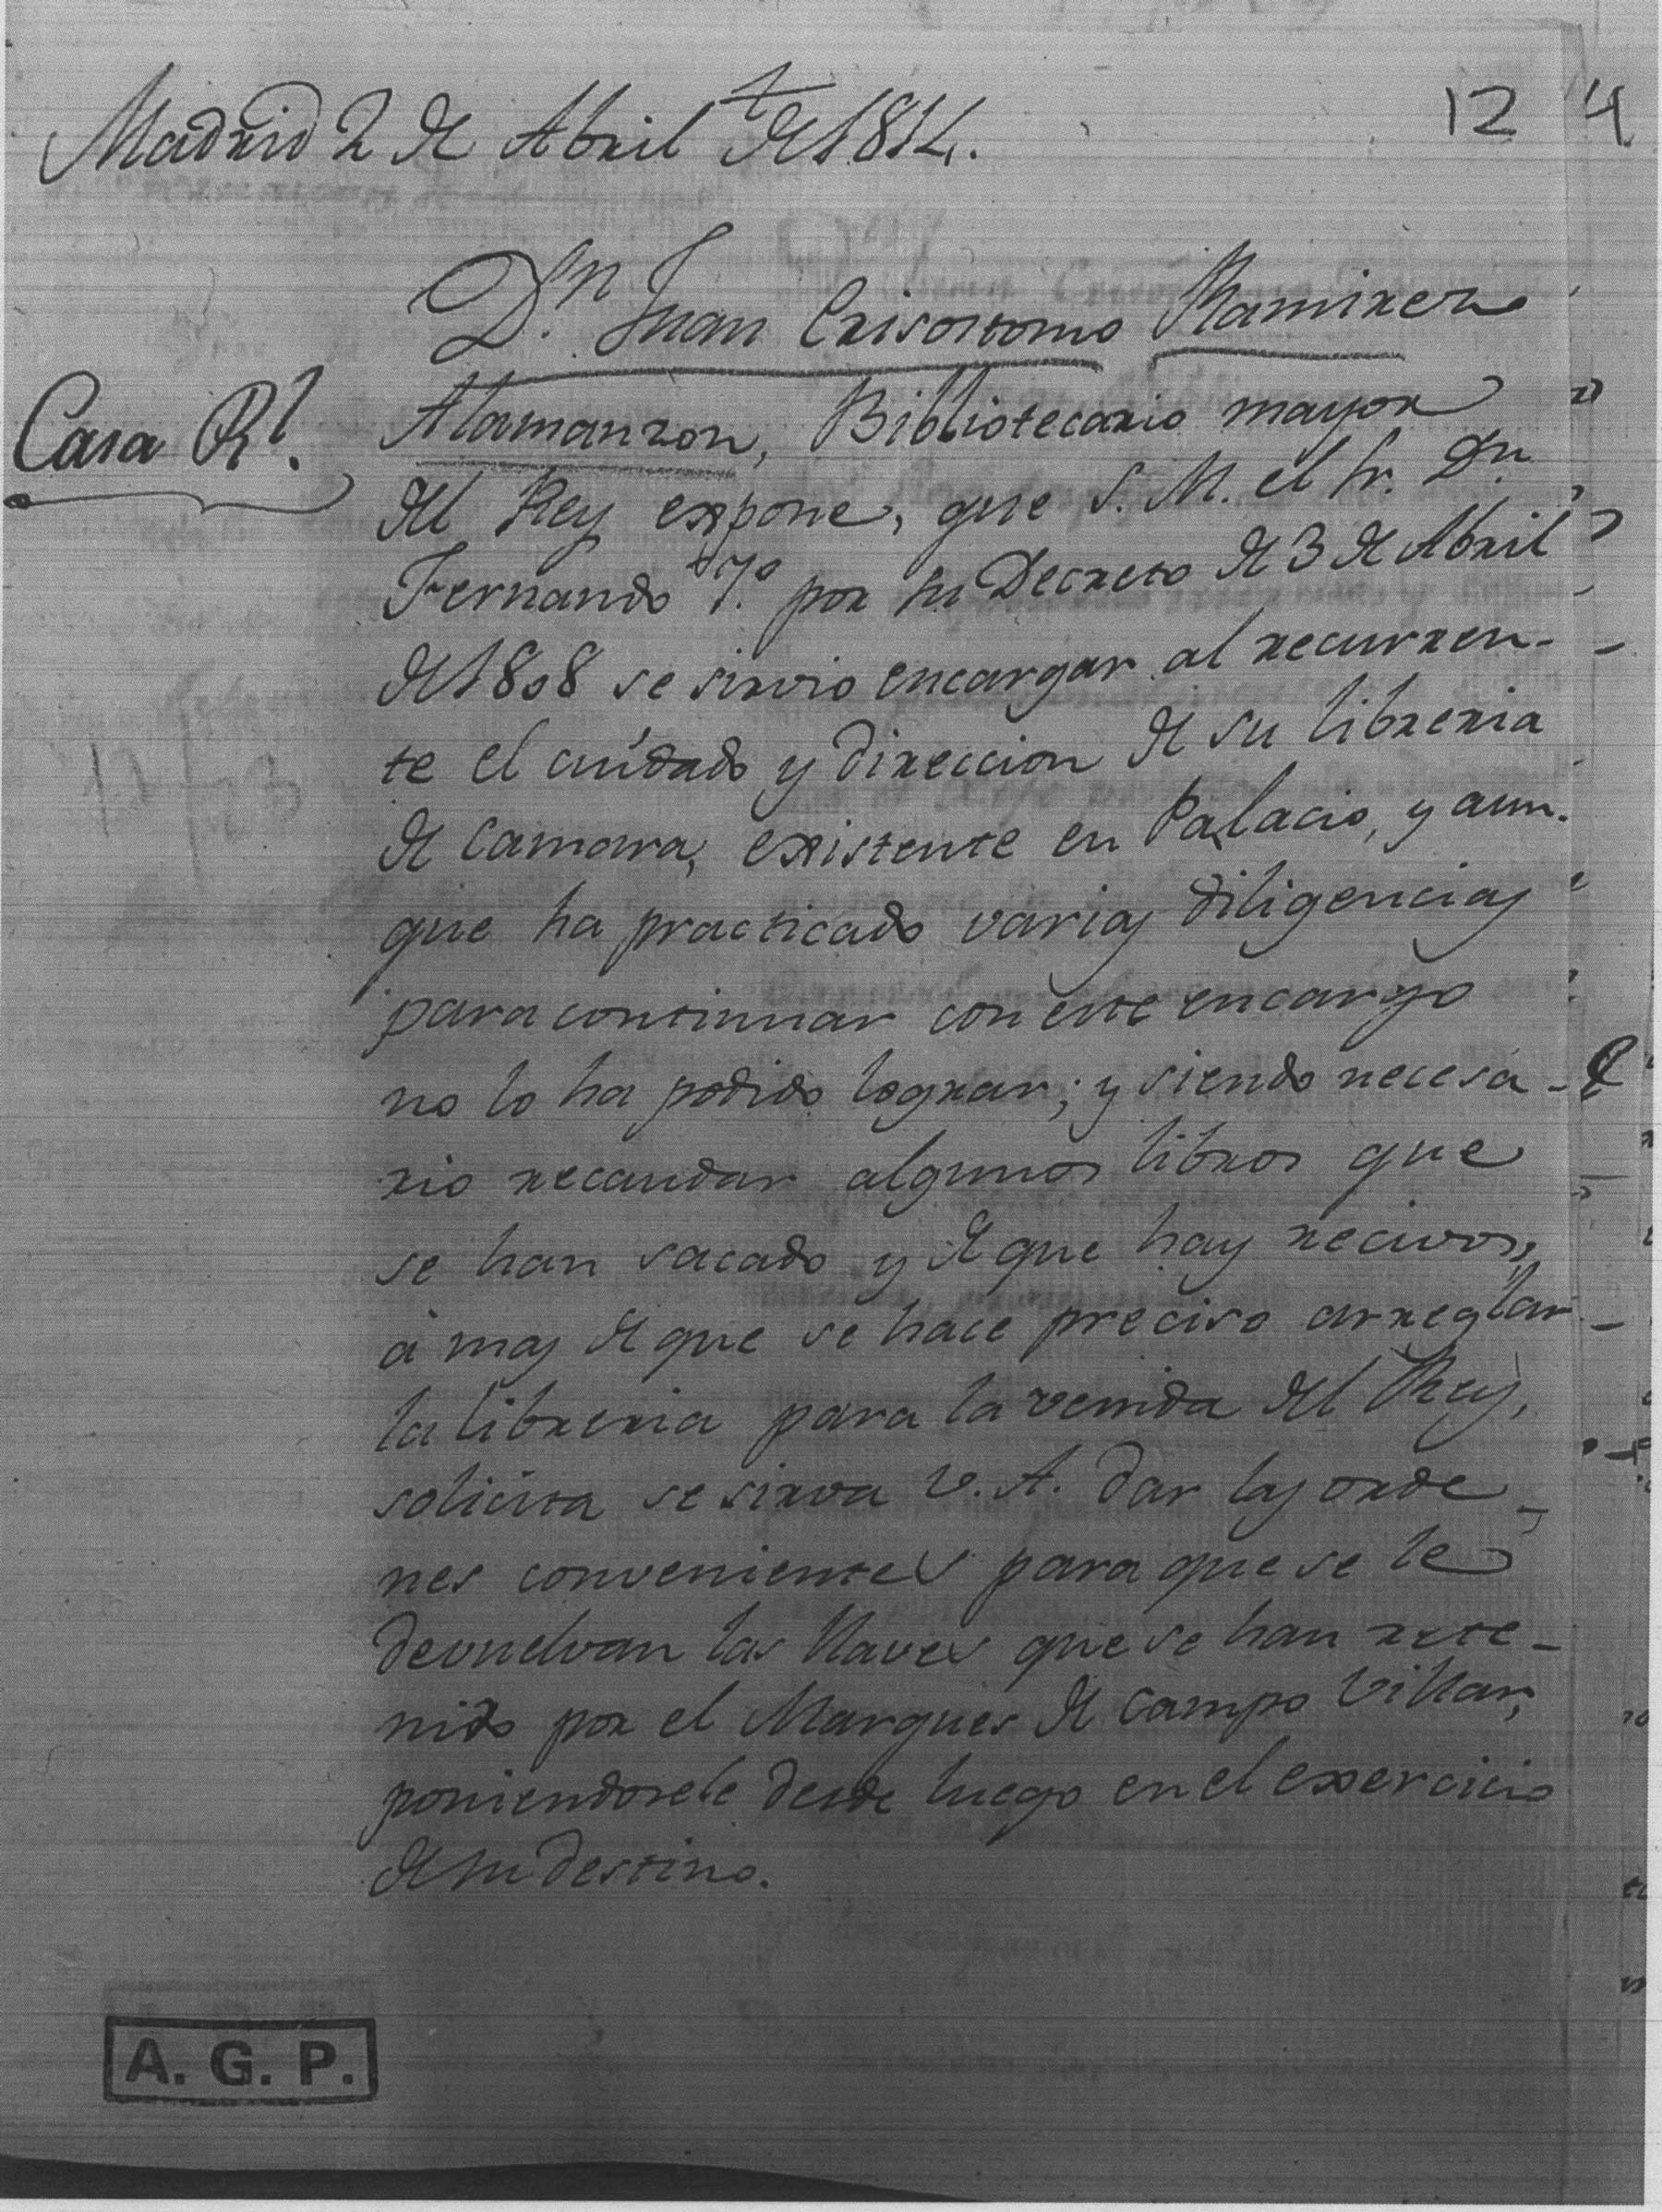 Madrid 2 de Abril de 1814.
12 4
Dn. Juan Crisostomo Ramirez
Casa Rl.
Alamanzon, Bibliotecario mayor
del Rey expone, que S. M. el Sr. Dn
Fernando 7.º por su Decreto de 3 de Abril
de 1808 se sirvio encargar al recurren-
te el cuidado y direccion de su libreria
de Camara, existente en Palacio, y aun-
que ha practicado varias diligencias
para continuar con este encargo
no lo ha podido lograr; y siendo necesa-
rio recaudar algunos libros que
se han sacado y de que hay recivos,
á mas de que se hace preciso arreglar
la libreria para la venida del Rey,
solicita se sirva V. A. dar las orde-
nes convenientes para que se le
devuelvan las llaves que se han rete-
nido por el Marques de Campo Villar,
poniendosele desde luego en el exercicio
de su destino.
A. G. P.